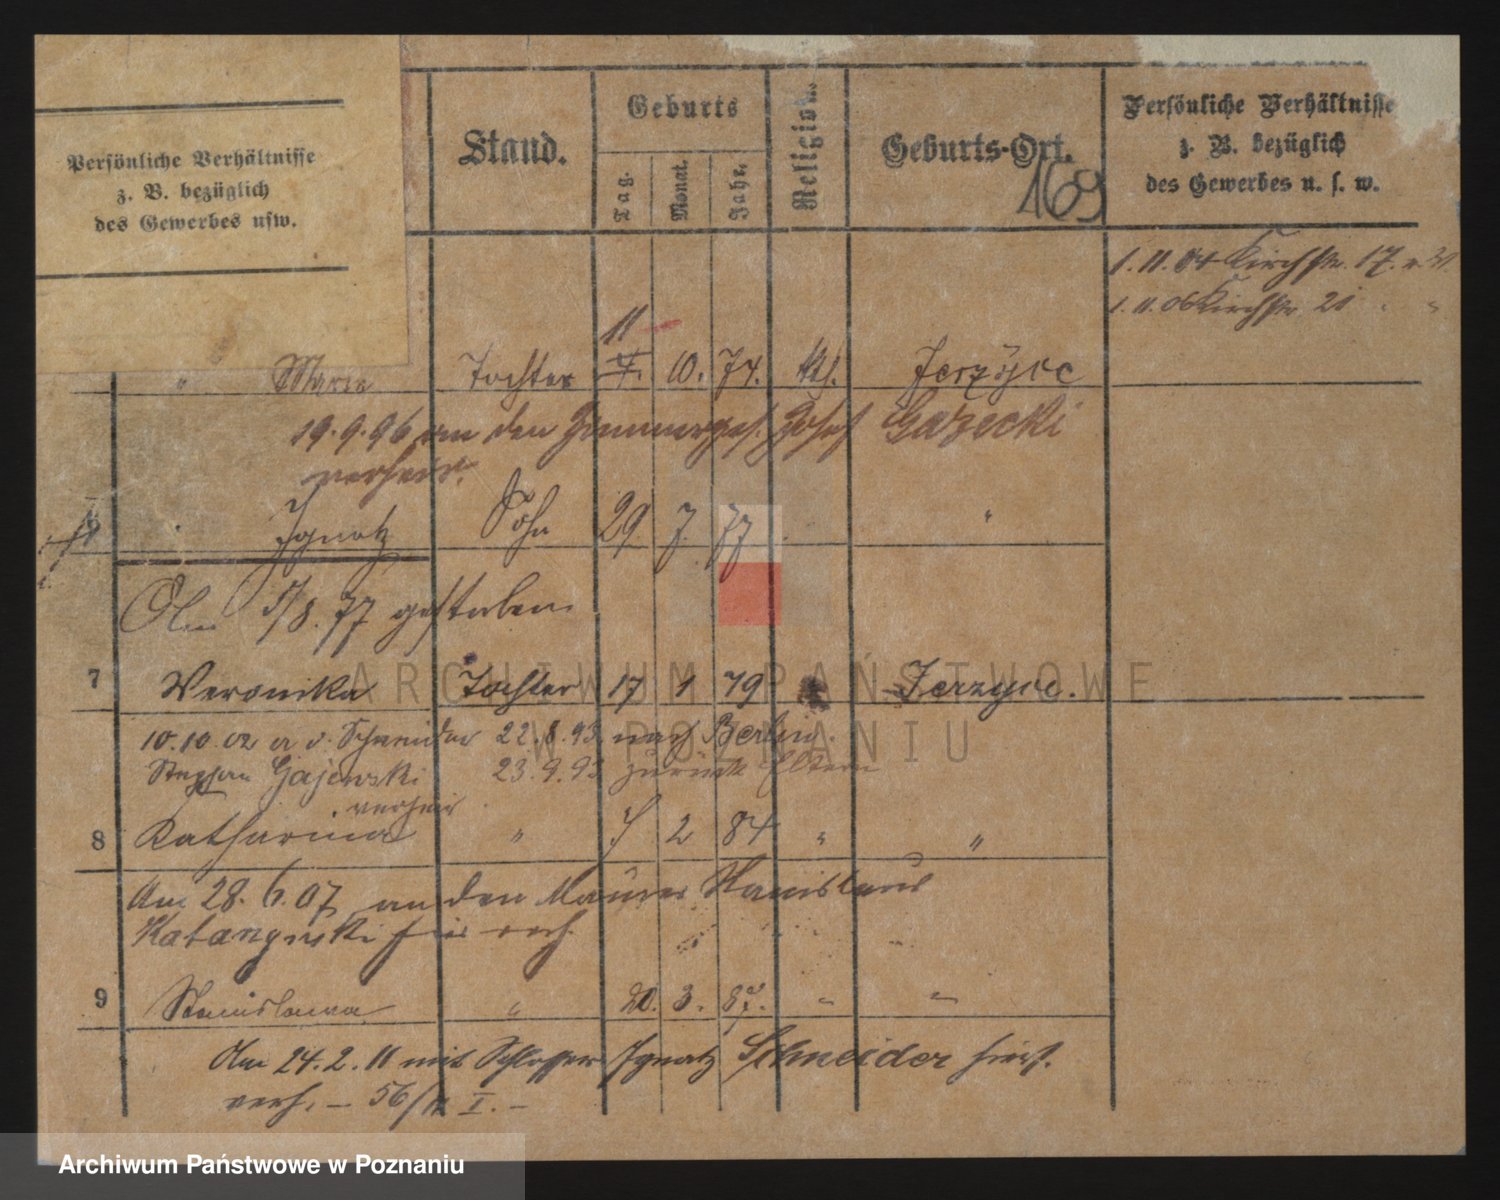 Persönliche Verhältnisse
z. B. bezüglich
des Gewerbes usw.
Stand.
Geburts
Tag.
Monat.
Jahr.
Religion.
Geburts-Ort.
169
Persönliche Verhältnisse
z. B. bezüglich
des Gewerbes u. s. w.
1.11.04 Kirchstr. 17.
1.11.06 Kirchstr 21 " "
11
" Maria Tochter 10. 74. kth. Jerzyce
19.9.96 an den Zimmerges. Josef Gazecki
verheir.
6 " Ignatz Sohn 29 7. 77 "
5/8.77 gestorben
7 Veronika Tochter 17 1 79 Jerzyce.
10.10.02 a d. Schneider 22.8.93 nach Berlin.
Stephan Gajewski 23.9.93 zurück Eltern
verheir
8 Katharina " 7 2 84 " "
Am 28.6.07 an den Maurer Stanislaus
hier verh.
9 Stanislawa " 20. 3. 87. " "
Am 24.2.11 mit Schlosser Ignatz Schneider hiers.
verh. – 56/11 I. –
ARCHIWUM PAŃSTWOWE
W POZNANIU
Archiwum Państwowe w Poznaniu